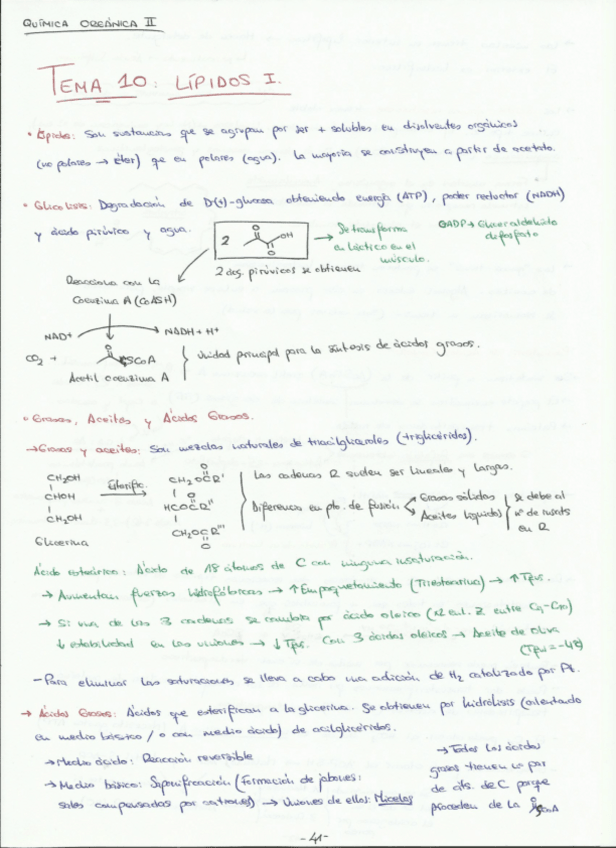 QUÍMICA ORGÁNICA II
TEMA 10: LÍPIDOS I.
• Lípidos: Son sustancias que se agrupan por ser + solubles en disolventes orgánicos
(no polares → éter) que en polares (agua). La mayoría se construyen a partir de acetato.
• Glicolisis: Degradación de D(+)-glucosa obteniendo energía (ATP), poder reductor (NADH)
y ácido pirúvico y agua.
2 O OH O
→ Se transforma
en láctico en el
músculo.
GADP → Gliceraldehido
difosfato
2 ács. pirúvicos se obtienen
Reacciona con la
Coenzima A (CoASH)
NAD+ → NADH + H+
CO2 + O SCoA
Unidad principal para la síntesis de ácidos grasos.
Acetil coenzima A
• Grasas, Aceites y Ácidos Grasos.
→ Grasas y aceites: Son mezclas naturales de triacilgliceroles (triglicéridos).
CH2OH
CHOH
CH2OH
Glicerina
Esterific.
O
CH2OCR'
O
HCOCR''
CH2OCR'''
O
Las cadenas R suelen ser lineales y largas.
Diferencia en pto. de fusión
Grasas sólidas
Aceites líquidos
Se debe al
nº de insats
en R
Ácido esteárico: Ácido de 18 átomos de C con ninguna insaturación.
→ Aumentan fuerzas hidrofóbicas → ↑ Empaquetamiento (Triestearina) → ↑ Tfus.
→ Si una de las 3 cadenas se cambia por ácido oleico (x2 enl. Z entre C9-C10)
↓ estabilidad en las uniones → ↓ Tfus. Con 3 ácidos oleicos → Aceite de oliva
(Tfus = -4ºC)
- Para eliminar las saturaciones se lleva a cabo una adición de H2 catalizada por Pt.
→ Ácidos Grasos: Ácidos que esterifican a la glicerina. Se obtienen por hidrólisis (calentando
en medio básico / o con medio ácido) de acilglicéridos.
→ Medio ácido: Reacción reversible
→ Medio básico: Saponificación (Formación de jabones:
sales compensadas por cationes) → Uniones de ellas: Micelas
→ Todos los ácidos
grasos tienen nº par
de áts. de C porque
proceden de la O SCoA
-41-